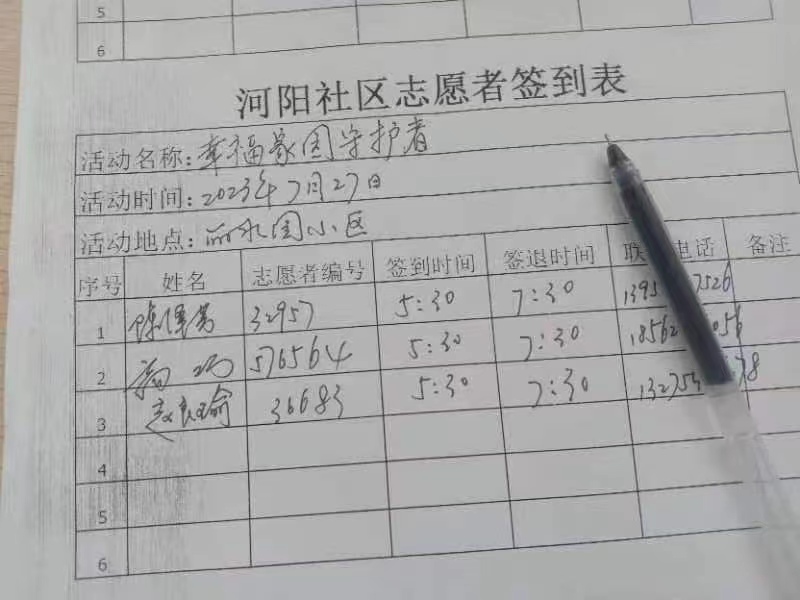 5
6
河阳社区志愿者签到表
活动名称：幸福家园守护者
活动时间：2023年7月27日
活动地点：丽水园小区
序号 姓名 志愿者编号 签到时间 签退时间 联 电话 备注
1 32957 5:30 7:30 1395 7526
2 576564 5:30 7:30 18562 056
3 赵 瑜 36683 5:30 7:30 132753 78
4
5
6